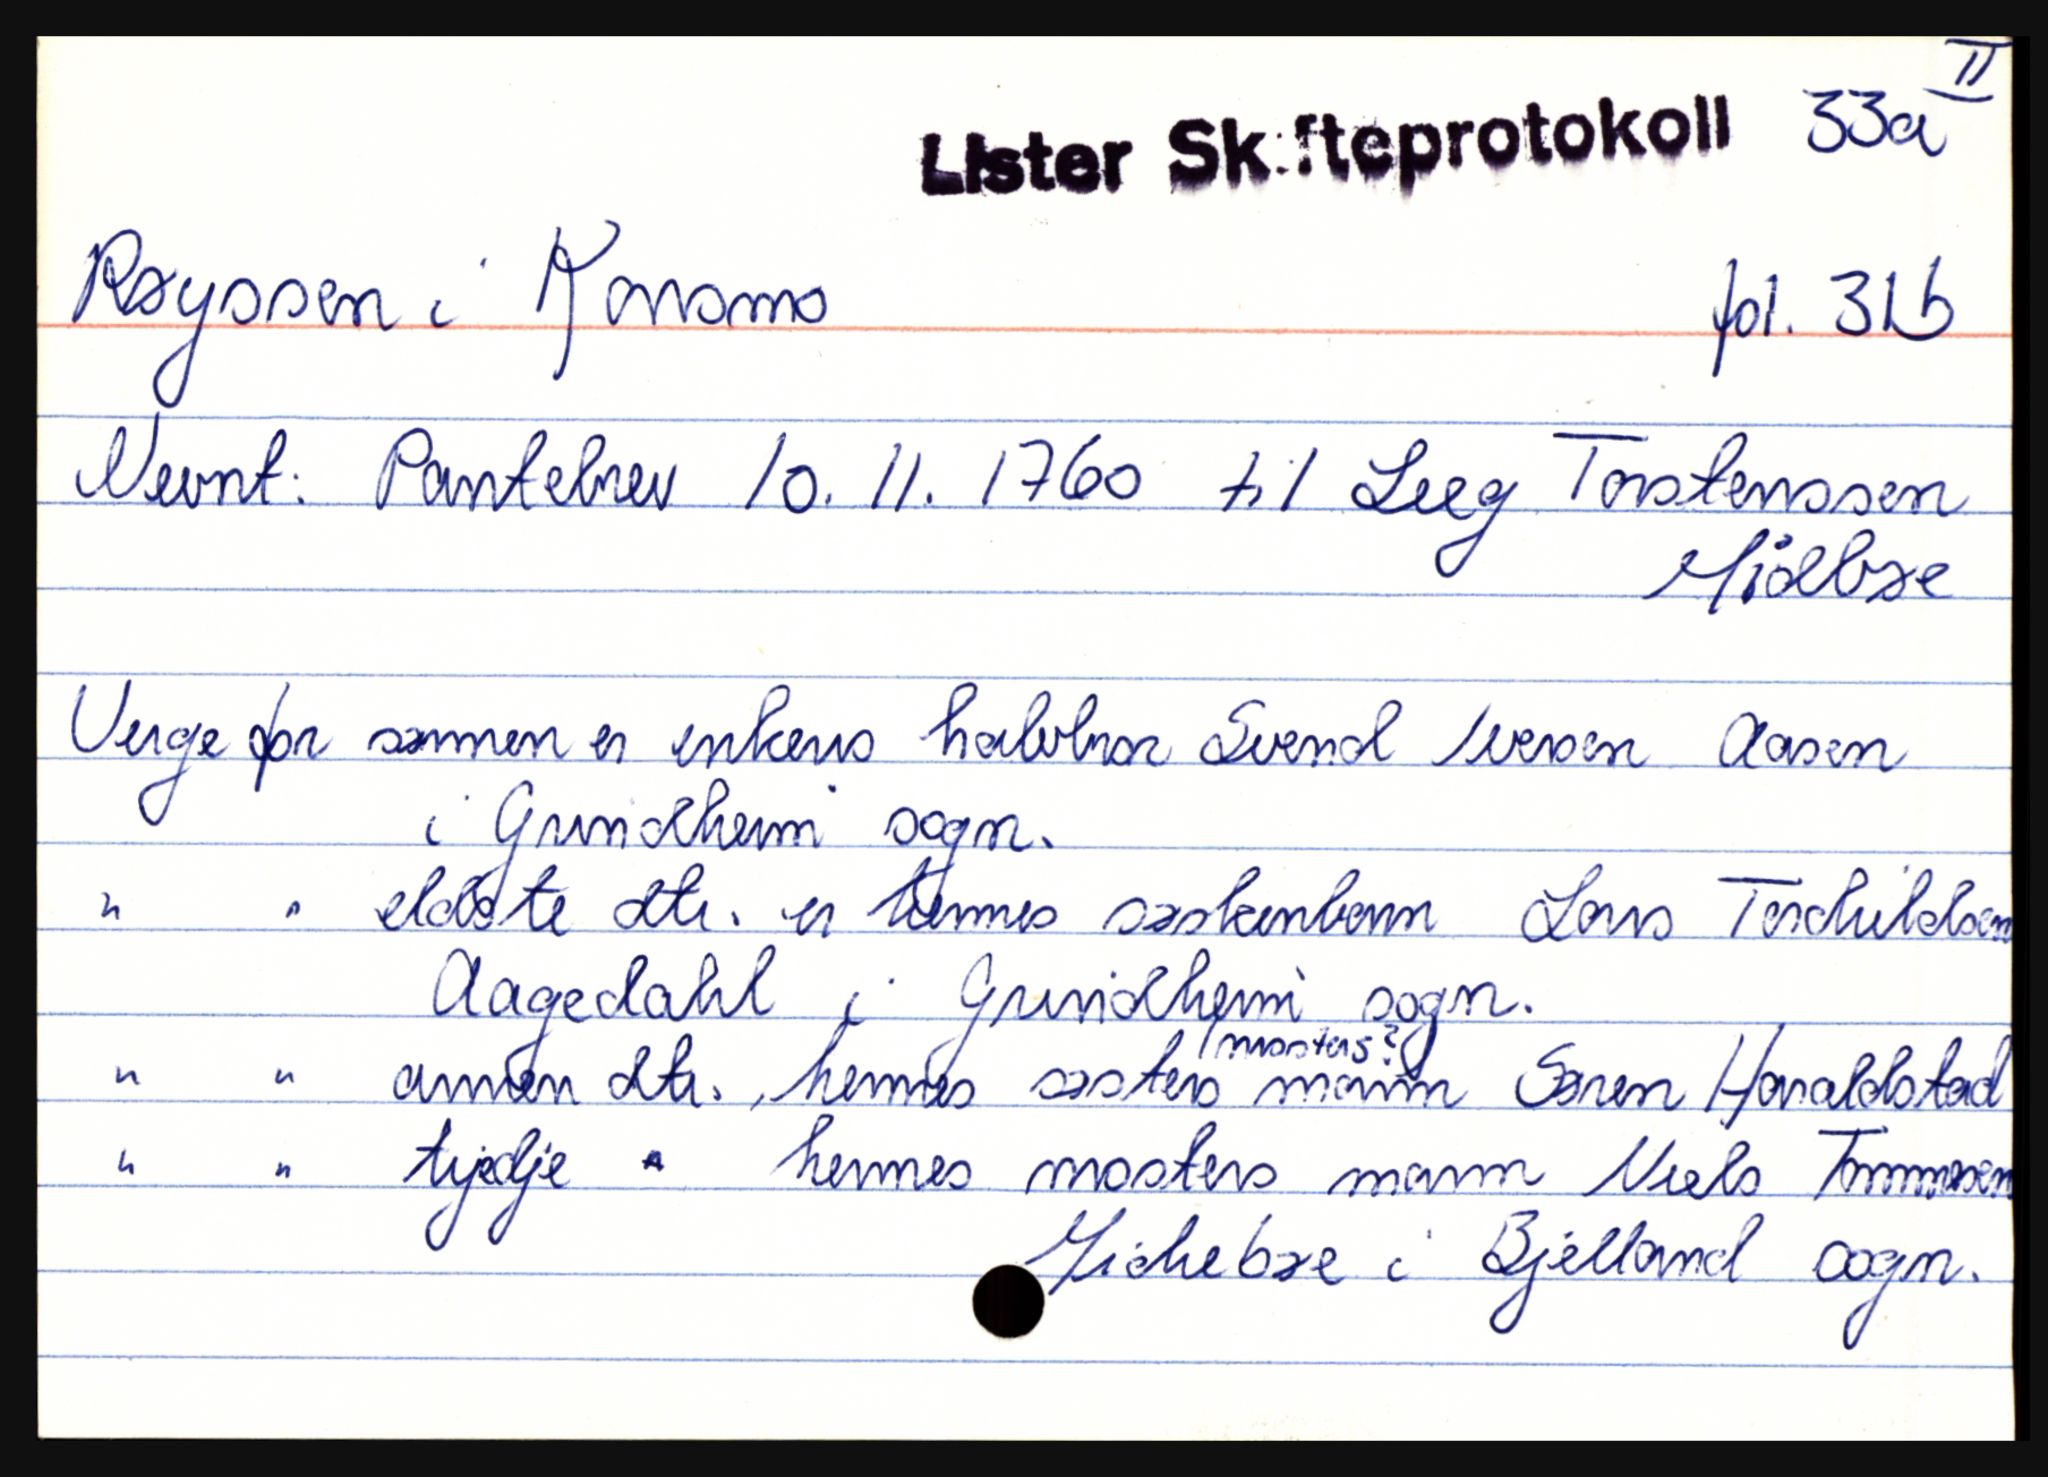 II
Lister Skifteprotokoll 33a
Røyssen i Konsmo fol. 31b
Nevnt: Pantebrev 10. 11. 1760 til Leeg Torstenssen
Midbøe
Verge for sønnen er enkens halvbror Svend Iversen Aasen
i Grindheim sogn.
" " eldste dtr. er hennes søskenbarn Lars Torchildsen
Aagedahl i Grindheim sogn.
mosters?
" " annen dtr., hennes søsters mann Søren Haraldstad
" " tredje " hennes mosters mann Niels Tommesen
i Bjelland sogn.